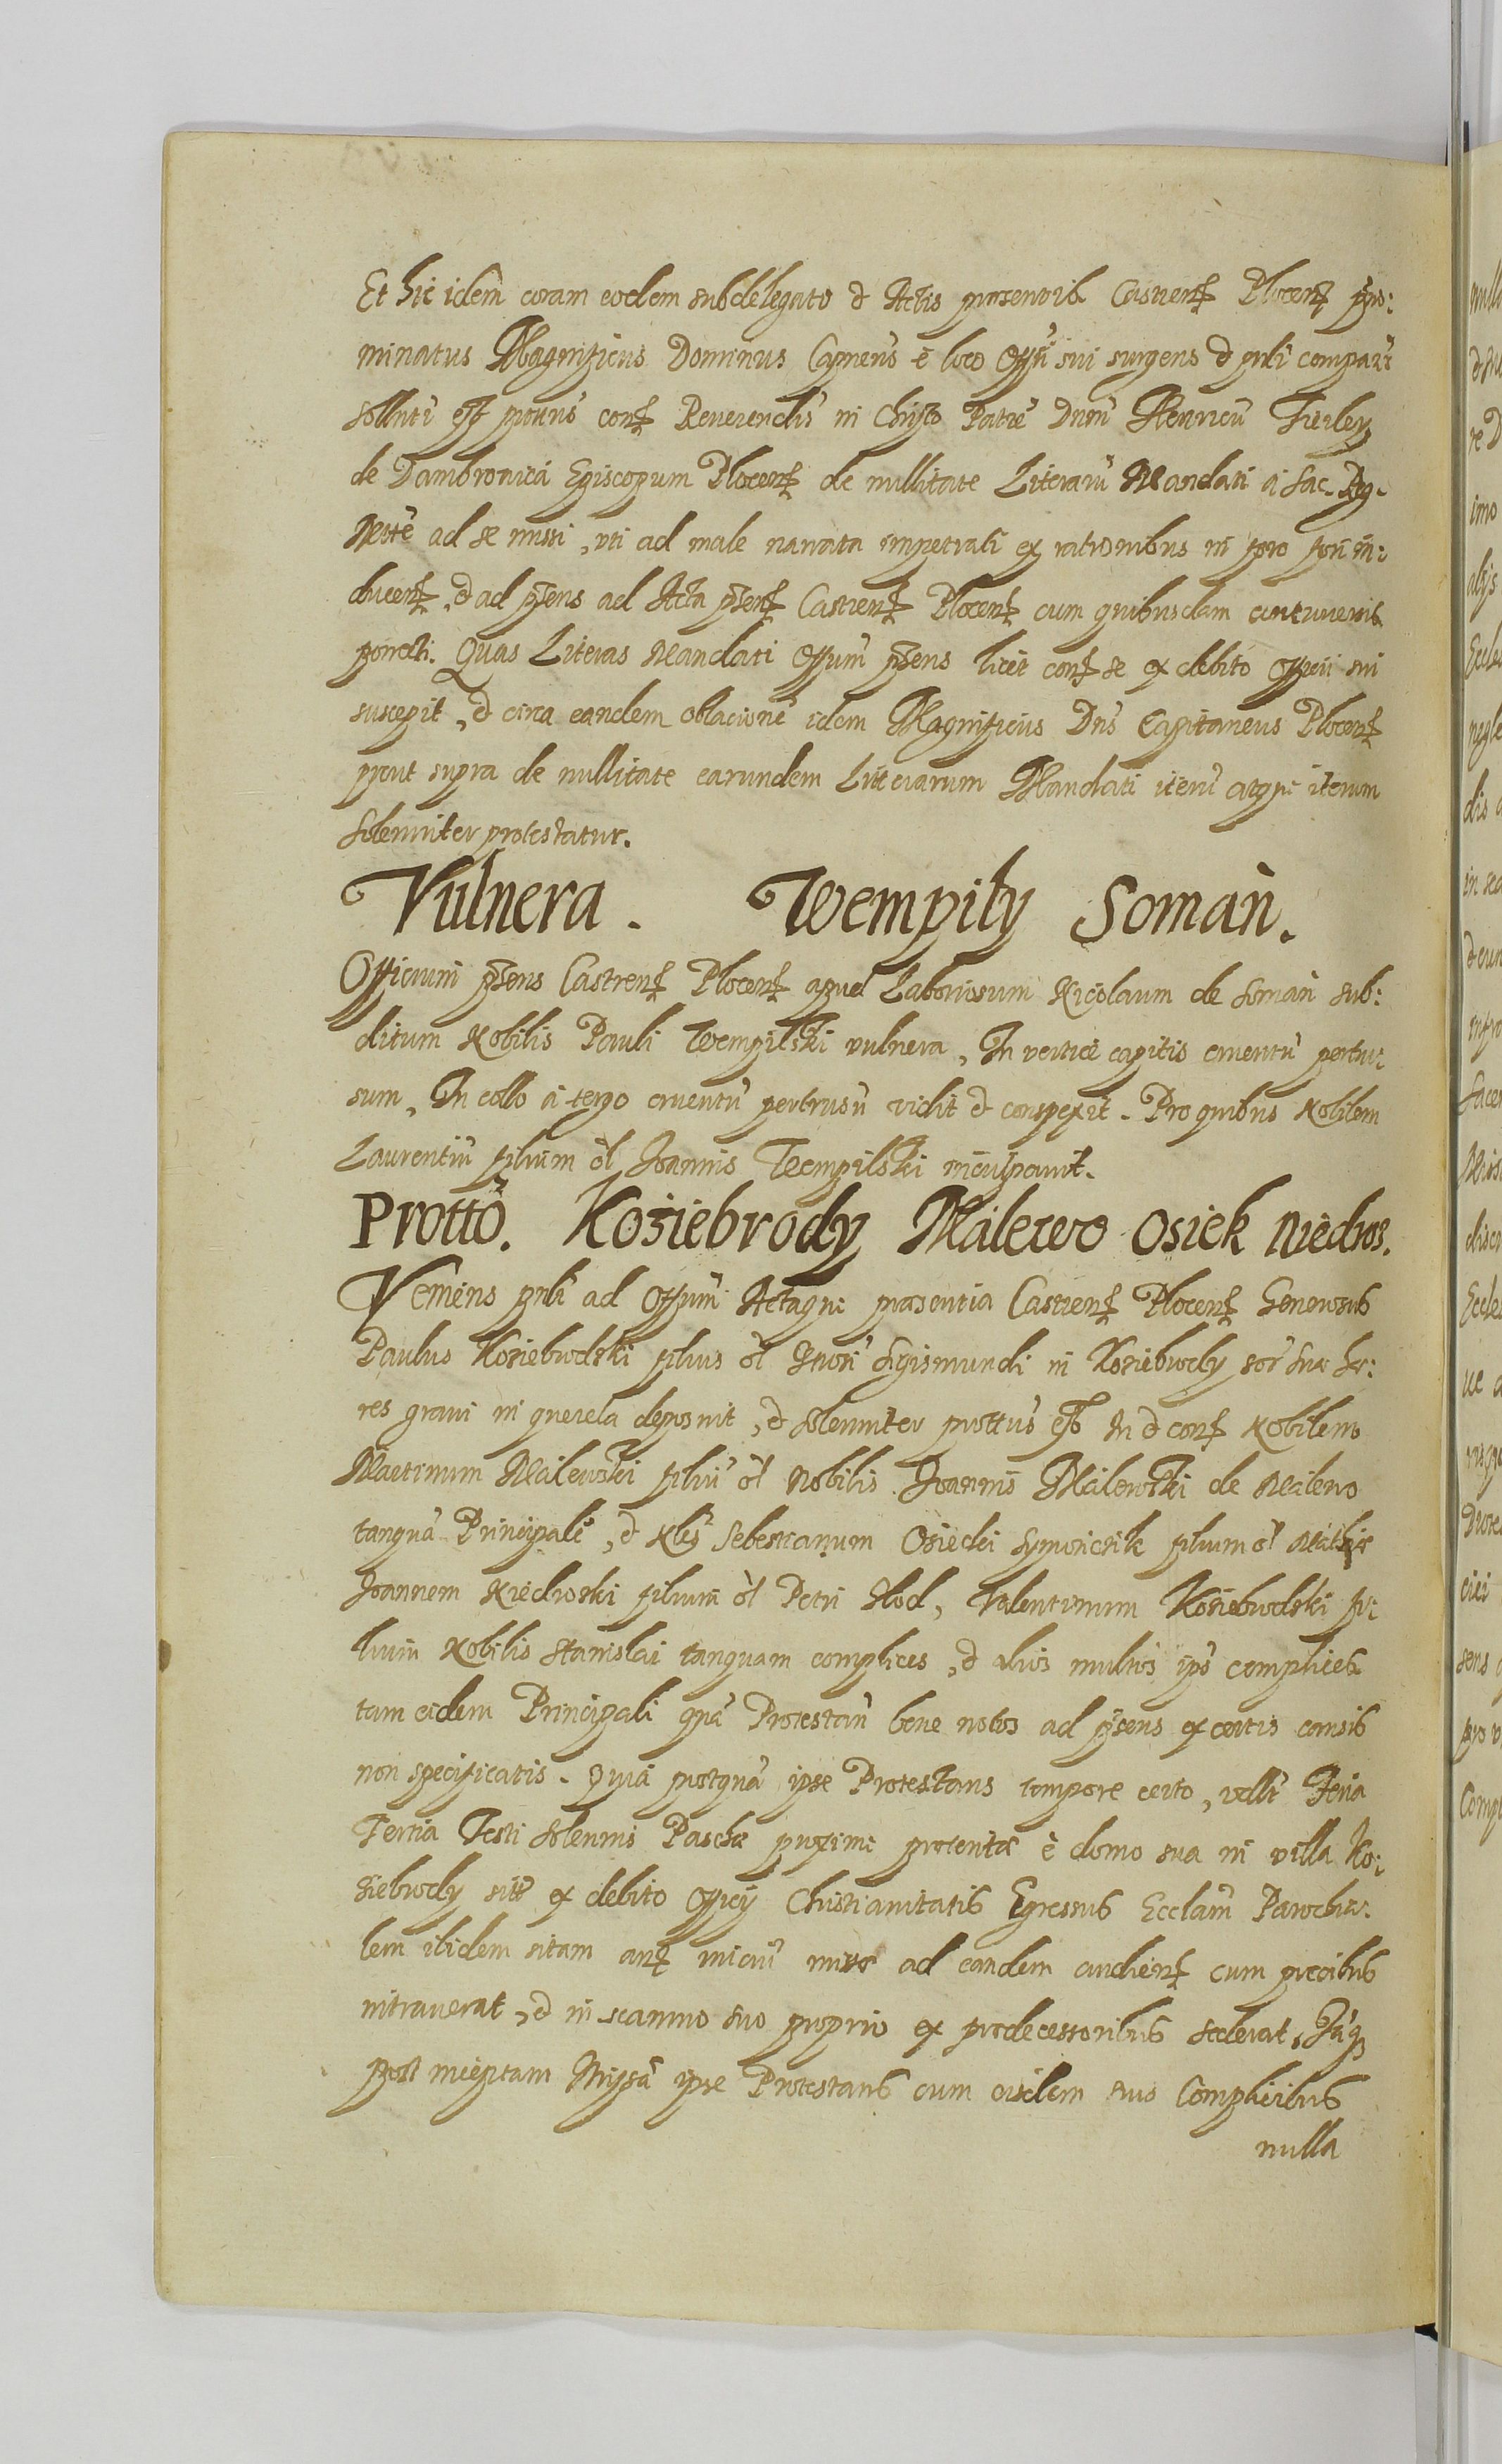 Et hic idem coram eodem subdelegato et Actis praesentib Castrens Plocens pro:
minatus Magnificus Dominus Capneus e loco Offii sui surgens et psnli comparũ
sollnti est prottus cons Reverendis in Christo Patrẽ Dnm Henricũ Firley
de Dambronica Episcopum Plocens de nullitate Literarũ Mandati a Sac. Reg.
Mtte ad se missi, uti ad male narrata impetrati ex rationibus in foro fori in:
ducens, et ad psens ad Acta psens Castrens Plocens cum quibusdam
porrecti. Quas Literas Mandati Offum psens licet cons se ex debito officii sui
suscepit, et circa eandem oblacionẽ idem Magnificus Dns Capitaneus Plocens
prout supra de nullitate earundem Litterarum Mandati iterũ atque iterum
solenniter protestatur.
Vulnera. Wempily Soman.
Officium psens Castrens Plocens apud Laboriosum Nicolaum de Soman sub:
ditum Nobilis Pauli Wempilski vulnera, In vertice capitis cruentũ pertu:
sum, In collo a tergo cruentũ pertrusũ vidit et conspexit. Pro quibus Nobilem
Laurentiũ filium ol Joannis Wempilski inculpavit.
Protto. Koziebrody Malewo Osiek Niedros.
Veniens psnli ad Offum Actaque praesentia Castrens Plocens Generosus
Paulus Koziebrodzki filius ol Gnosi Sigismundi in Koziebrody sor suae hae:
res gravi in querela deposuit, et solenniter prottus est In et cons Nobilem
Martinum Malewski filiũ ol Nobilis Joannis Malewski de Malewo
tanquã Principalẽ, et Nles Sebestianum Osiecki Symoncik filium ol Mathiae
Joannem Niedroski filium ol Petri Slod, Valentinum Koziebrodski fi:
lium Nobilis Stanislai tanquam complices, et alios multos ips complices
tam eidem Principali quã Protestañ bene notos ad psens ex certis causis
non specificatis. Quia postquã ipse Protestans tempore certo, vdlt Feria
Tertia Festi solennis Paschae proxime praeteritae e domo sua in villa Ko:
ziebrody sitt ex debito officij Christianitatis Egressus Ecclam Parochia:
lem ibidem sitam ant iniciũ missae ad eandem audiens cum precibus
intraverat, et in scamno suo proprio ex praedecessoribus sederat, Itaq
post inceptam Missã ipse Protestans cum eisdem suis Complicibus
nulla